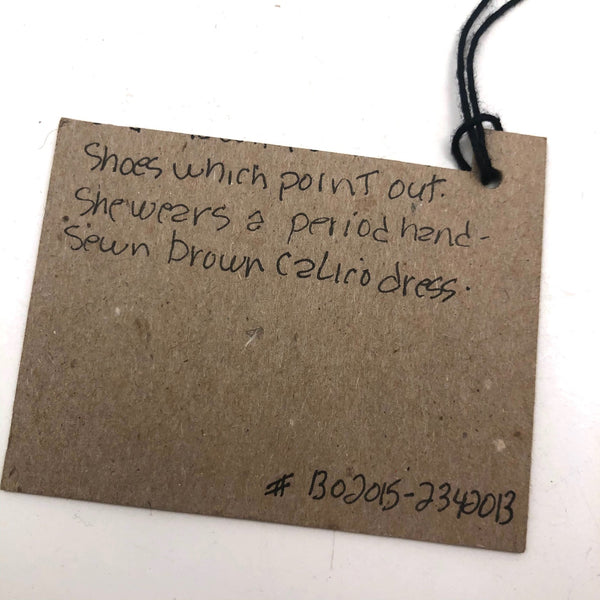 Shoes which point out.
She wears a period hand-
sewn brown calico dress.
# B02015-2342013